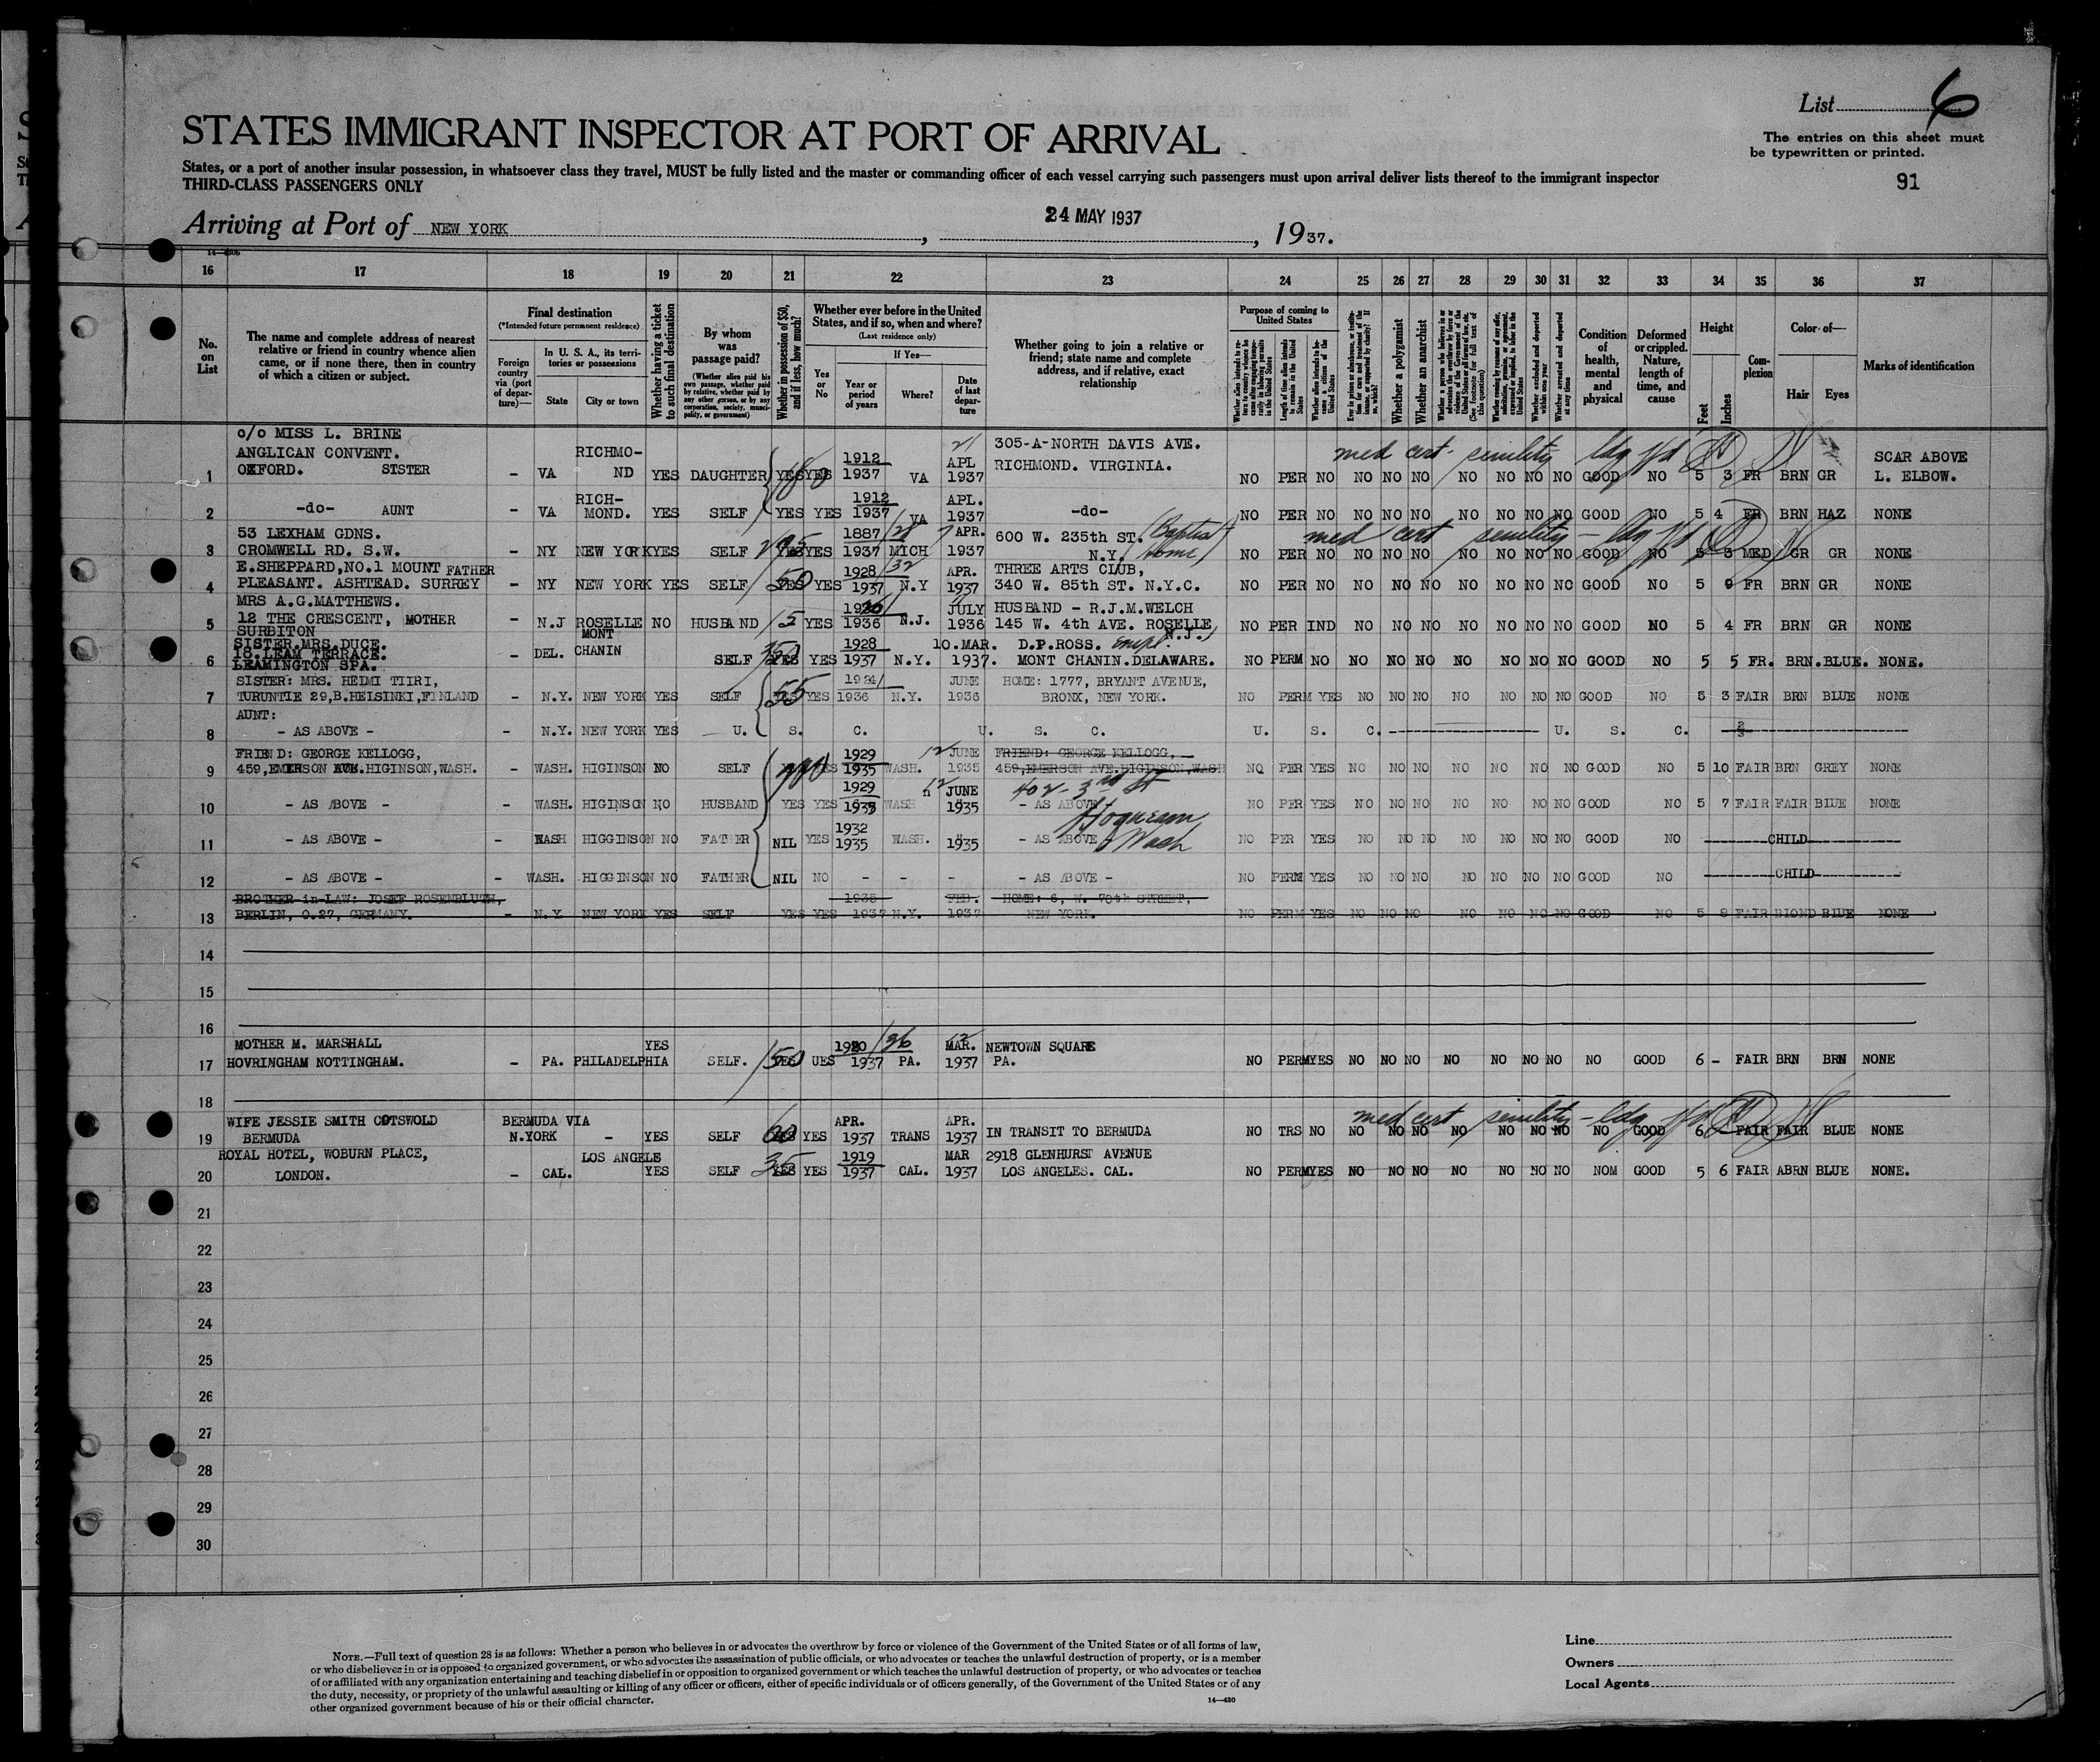 List 6
STATES IMMIGRANT INSPECTOR AT PORT OF ARRIVAL
The entries on this sheet must
be typewritten or printed.
States, or a port of another insular possession, in whatsoever class they travel, MUST be fully listed and the master or commanding officer of each vessel carrying such passengers must upon arrival deliver lists thereof to the immigrant inspector
THIRD-CLASS PASSENGERS ONLY
91
Arriving at Port of NEW YORK, 24 MAY 1937, 1937.
16 17 18 19 20 21 22 23 24 25 26 27 28 29 30 31 32 33 34 35 36 37
No. on List
The name and complete address of nearest relative or friend in country whence alien came, or if none there, then in country of which a citizen or subject.
Final destination
(*Intended future permanent residence)
Foreign country via (port of departure)—
In U. S. A., its territories or possessions
State
City or town
Whether having a ticket to such final destination
By whom was passage paid?
(Whether alien paid his own passage, whether paid by relative, whether paid by any other person, or by any corporation, society, municipality, or government)
Whether in possession of $50, and if less, how much?
Whether ever before in the United States, and if so, when and where?
(Last residence only)
Yes or No
If Yes—
Year or period of years
Where?
Date of last departure
Whether going to join a relative or friend; state name and complete address, and if relative, exact relationship
Purpose of coming to United States
Whether a polygamist
Whether an anarchist
Condition of health, mental and physical
Deformed or crippled. Nature, length of time, and cause
Height
Feet
Inches
Complexion
Color of—
Hair
Eyes
Marks of identification
c/o MISS L. BRINE
ANGLICAN CONVENT. RICHMO- 1912 21 305-A-NORTH DAVIS AVE. med cert- senility
1 OXFORD. SISTER - VA ND YES DAUGHTER YES YES 1937 VA APL 1937 RICHMOND. VIRGINIA. NO PER NO NO NO NO NO NO NO NO GOOD NO 5 3 FR BRN GR SCAR ABOVE L. ELBOW.
2 -do- AUNT - VA RICH- MOND. YES SELF YES YES 1912 1937 VA APL. 1937 -do- NO PER NO NO NO NO NO NO NO NO GOOD NO 5 4 FR BRN HAZ NONE
53 LEXHAM GDNS. 1887 APR. 600 W. 235th ST. (Baptist Home) med cert senility
3 CROMWELL RD. S.W. - NY NEW YORK YES SELF YES YES 1937 MICH 1937 N.Y. NO PER NO NO NO NO NO NO NO NO GOOD NO 5 3 MED GR GR NONE
E.SHEPPARD,NO.1 MOUNT FATHER 1928 APR. THREE ARTS CLUB,
4 PLEASANT. ASHTEAD. SURREY - NY NEW YORK YES SELF 50 YES 1937 N.Y 1937 340 W. 85th ST. N.Y.C. NO PER NO NO NO NO NO NO NO NO GOOD NO 5 FR BRN GR NONE
MRS A.G.MATTHEWS. JULY HUSBAND - R.J.M.WELCH
5 12 THE CRESCENT, MOTHER SURBITON - N.J ROSELLE NO HUSBAND YES 1936 N.J. 1936 145 W. 4th AVE. ROSELLE, N.J. NO PER IND NO NO NO NO NO NO NO GOOD NO 5 4 FR BRN GR NONE
SISTER.MRS.DUCE. MONT 1928 10.MAR. D.P.ROSS. empl.
6 18.LEAM TERRACE. LEAMINGTON SPA. - DEL. CHANIN SELF YES YES 1937 N.Y. 1937. MONT CHANIN.DELAWARE. NO PERM NO NO NO NO NO NO NO NO GOOD NO 5 5 FR. BRN.BLUE. NONE.
SISTER: MRS. HEIMI TIIRI, 1924 JUNE HOME: 1777, BRYANT AVENUE,
7 TURUNTIE 29,B.HELSINKI,FINLAND - N.Y. NEW YORK YES SELF 55 YES 1936 N.Y. 1936 BRONX, NEW YORK. NO PERM YES NO NO NO NO NO NO NO GOOD NO 5 3 FAIR BRN BLUE NONE
AUNT:
8 - AS ABOVE - - N.Y. NEW YORK YES U. S. C. U. S. C. U. S. C. U. S. C.
FRIEND: GEORGE KELLOGG, 1929 12 JUNE FRIEND: GEORGE KELLOGG,
9 459,EMERSON AVE.HIGINSON,WASH. - WASH. HIGINSON NO SELF YES 1935 WASH. 1935 459,EMERSON AVE.HIGINSON,WASH NO PER YES NO NO NO NO NO NO NO GOOD NO 5 10 FAIR BRN GREY NONE
1929 12 JUNE 402- 3rd St
10 - AS ABOVE - - WASH. HIGINSON NO HUSBAND YES YES 1935 WASH 1935 - AS ABOVE NO PER YES NO NO NO NO NO NO NO GOOD NO 5 7 FAIR FAIR BLUE NONE
1932 Hoquiam
11 - AS ABOVE - - WASH HIGGINSON NO FATHER NIL YES 1935 WASH. 1935 - AS ABOVE Wash NO PER YES NO NO NO NO NO NO NO GOOD NO CHILD
12 - AS ABOVE - - WASH. HIGGINSON NO FATHER NIL NO - - - - AS ABOVE - NO PERM YES NO NO NO NO NO NO NO GOOD NO CHILD
BROTHER in-LAW: JOSEF ROSENBLUTH, 1935 FEB. HOME: 6, W. 70th STREET,
13 BERLIN, O.27, GERMANY. - N.Y NEW YORK YES SELF YES YES 1937 N.Y. 1937 NEW YORK. NO PERM YES NO NO NO NO NO NO NO GOOD NO 5 8 FAIR BLOND BLUE NONE
14
15
16
MOTHER M. MARSHALL YES MAR. NEWTOWN SQUARE
17 HOVRINGHAM NOTTINGHAM. - PA. PHILADELPHIA SELF. YES UES 1937 PA. 1937 PA. NO PERM YES NO NO NO NO NO NO NO NO GOOD 6 - FAIR BRN BRN NONE
18
WIFE JESSIE SMITH COTSWOLD BERMUDA VIA APR. APR. med cert senility
19 BERMUDA N.YORK - YES SELF 60 YES 1937 TRANS 1937 IN TRANSIT TO BERMUDA NO TRS NO NO NO NO NO NO NO NO NO GOOD 6 FAIR FAIR BLUE NONE
ROYAL HOTEL, WOBURN PLACE, LOS ANGELE 1919 MAR 2918 GLENHURST AVENUE
20 LONDON. - CAL. YES SELF 35 YES 1937 CAL. 1937 LOS ANGELES. CAL. NO PERM YES NO NO NO NO NO NO NO NOM GOOD 5 6 FAIR ABRN BLUE NONE.
21
22
23
24
25
26
27
28
29
30
NOTE.—Full text of question 28 is as follows: Whether a person who believes in or advocates the overthrow by force or violence of the Government of the United States or of all forms of law,
or who disbelieves in or is opposed to organized government, or who advocates the assassination of public officials, or who advocates or teaches the unlawful destruction of property, or is a member
of or affiliated with any organization entertaining and teaching disbelief in or opposition to organized government or which teaches the unlawful destruction of property, or who advocates or teaches
the duty, necessity, or propriety of the unlawful assaulting or killing of any officer or officers, either of specific individuals or of officers generally, of the Government of the United States or of any
other organized government because of his or their official character.
14—430
Line
Owners
Local Agents